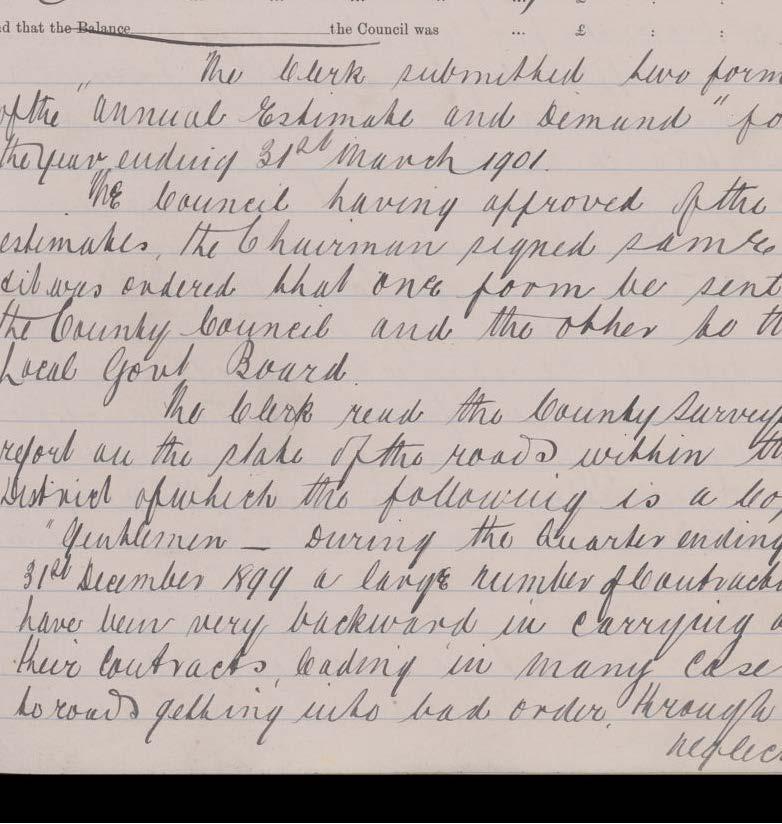 nd that the Balance the Council was ... £ : :
The Clerk submitted two form
of the "Annual Estimate and Demand" fo
the year ending 31st March 1901.
The Council having approved of the
estimates, the Chairman signed same
& it was ordered that one form be sent
the County Council and the other to th
Local Govt Board.
The Clerk read the County Survey
report on the state of the roads within th
District of which the following is a Co
"Gentlemen — During the Quarter ending
31st December 1899 a large number of Contract
have been very backward in carrying o
their Contracts, leading in many case
to roads getting into bad order, through
neglec